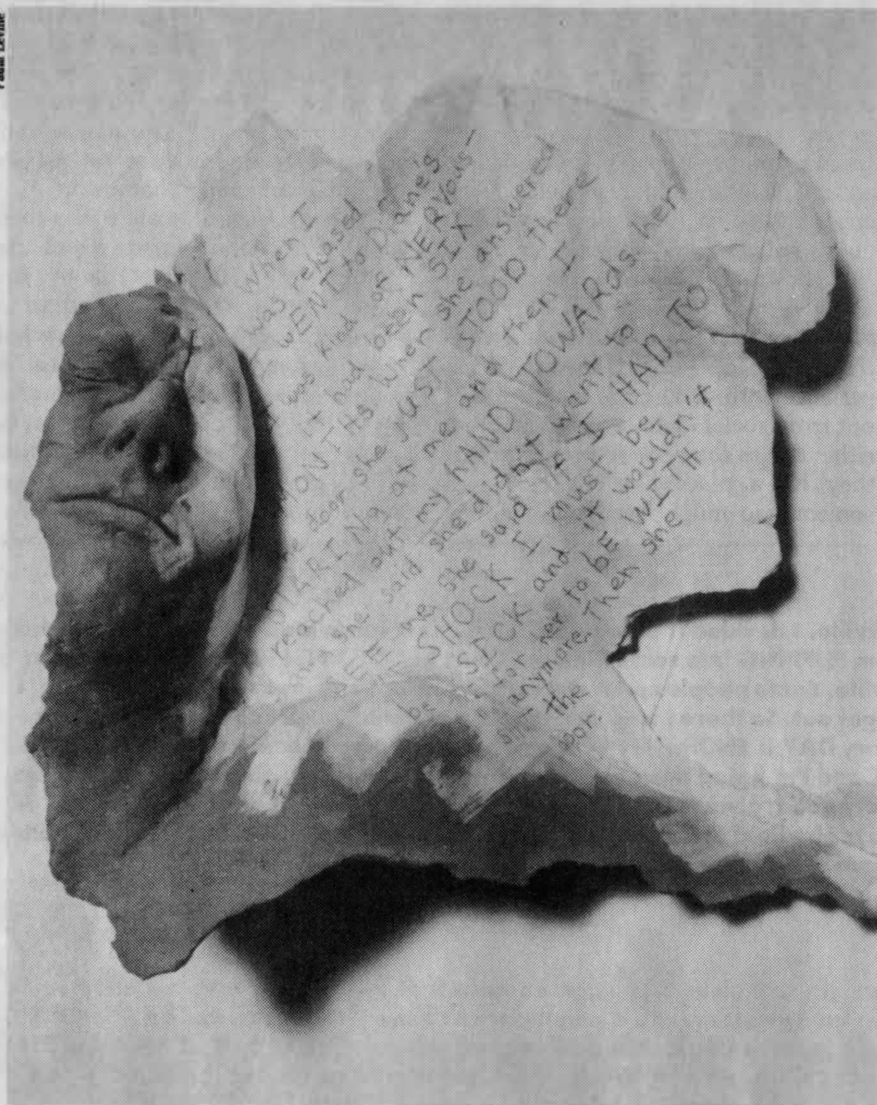 When I
was released
I WENT to Diane's
I was kind of NERVOUS-
it had been SIX
MONTHS When she answered
the door she JUST STOOD there
STARING at me and then I
reached out my HAND TOWARDS her
and she said she didn't want to
SEE me she said if I HAD TO
BE SHOCK I must be
SICK and it wouldn't
be for her to BE WITH
anymore. Then she
shut the
door.